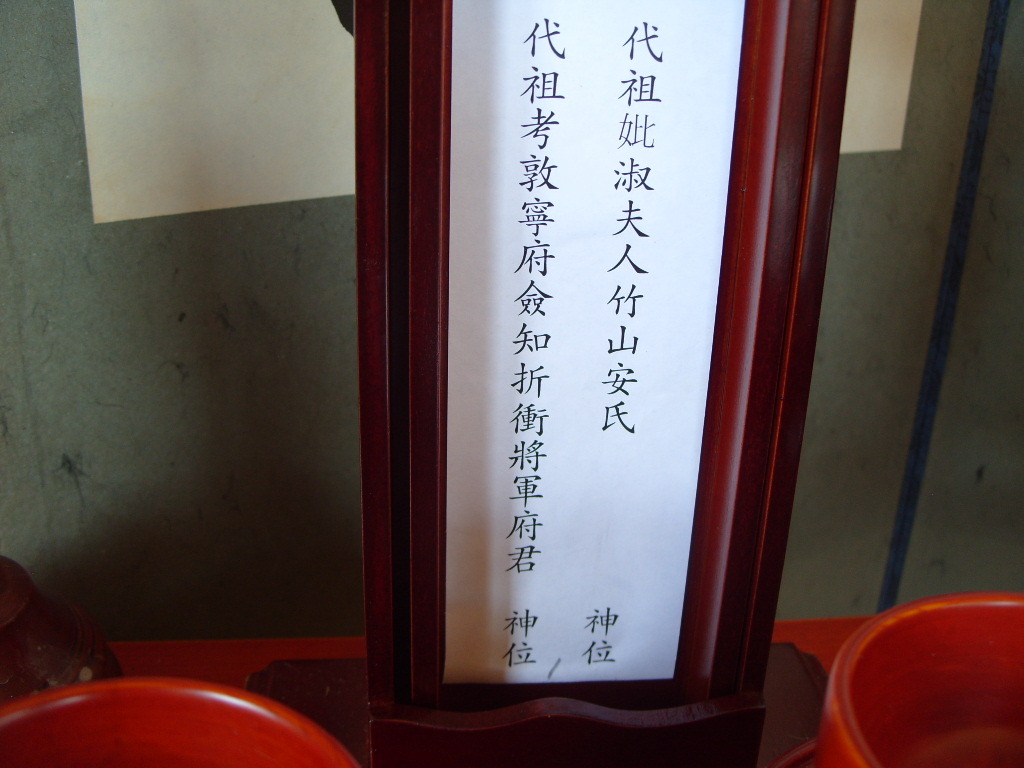 代祖妣淑夫人竹山安氏 神位
代祖考敦寧府僉知折衝將軍府君 神位